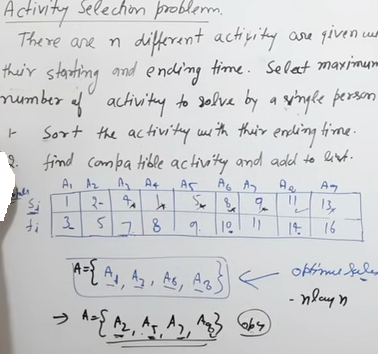 Activity Selection problem.
There are n different activity are given
their starting and ending time. Select maximum
number of activity to solve by a single person
1- Sort the activity with their ending time.
2. find compatible activity and add to list.
A1 A2 A3 A4 A5 A6 A7 A8 A9
Si 1 2 4 1 5 8 9 11 13
fi 3 5 7 8 9 10 11 14 16
A={A1, A3, A6, A8} ← optimum
- nlogn
→ A={A2, A5, A7, A8}